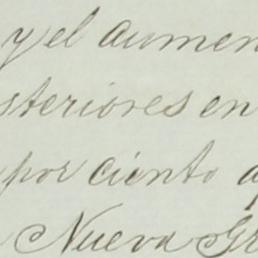 y el aumen
steriores en
por ciento a
Nueva Gr